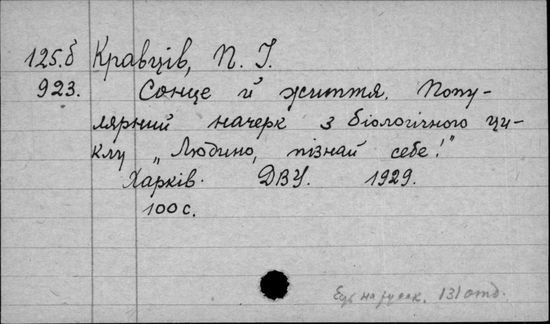 125.б Кравців, П. І.
923. Сонце й життя. Попу-
лярний начерк з біологічного ци-
клу „Людино, пізнай себе!"
Харків. ДВУ. 1929.
100 с.
на 131 отд.